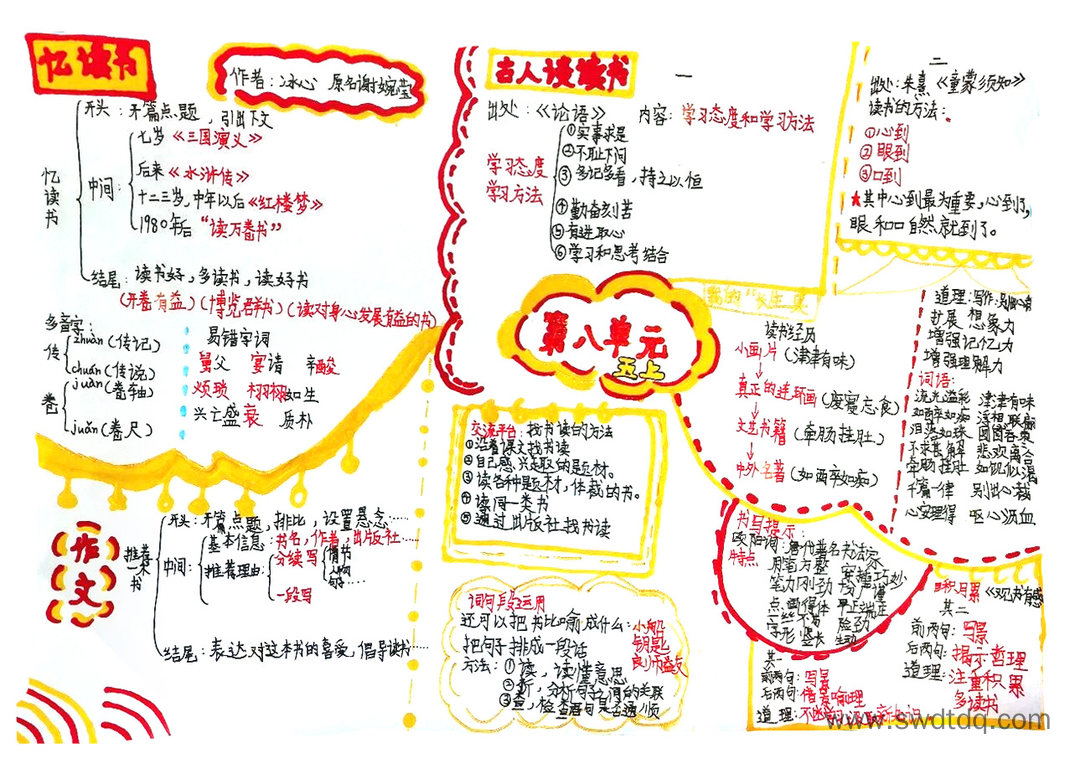 忆读书
作者：冰心 原名谢婉莹
忆读书
开头：开篇点题，引出下文
中间：
七岁《三国演义》
后来《水浒传》
十二三岁，中年以后《红楼梦》
1980年后“读万卷书”
结尾：读书好，多读书，读好书
（开卷有益）（博览群书）（读对身心发展有益的书）
多音字：
传
zhuàn（传记）
chuán（传说）
卷
juàn（卷轴）
juǎn（卷尺）
易错字词
舅父 宴请 辛酸
烦琐 栩栩如生
兴亡盛衰 质朴
作文
推荐一本书
开头：开篇点题，排比，设置悬念……
中间：
基本信息：书名，作者，出版社……
推荐理由：
分续写
一段写
结尾：表达对这本书的喜爱，倡导读书……
古人谈读书
一
出处：《论语》 内容：学习态度和学习方法
学习态度
学习方法
①实事求是
②不耻下问
③多记多看，持之以恒
④勤奋刻苦
⑤有进取心
⑥学习和思考结合
二
出处：朱熹《童蒙须知》
读书的方法：
①心到
②眼到
③口到
★其中心到最为重要，心到了，
眼和口自然就到了。
第八单元
五上
我的“长生果
读书经历
小画片（津津有味）
真正的连环画（废寝忘食）
文艺书籍（牵肠挂肚）
中外名著（如痴如醉）
扩展 想象力
增强记忆力
增强理解力
词语：
流光溢彩 津津有味
如醉如痴 浮想联翩
不求甚解 悲欢离合
牵肠挂肚 如饥似渴
千篇一律 别出心裁
心安理得 呕心沥血
交流平台：找书读的方法
①沿着课文找书读
②自己感兴趣的题材。
③读各种题材，体裁的书。
④读同一类书
⑤通过出版社找书读
词句段运用
还可以把书比喻成什么：小船
钥匙
良师益友
把句子排成一段话
方法：①读，读懂意思
②析，分析句子之间的关联
③查，检查语句是否通顺
书写提示
欧阳询：唐代著名书法家
特点
用笔方整
笔力刚劲
平正端庄
积累《观书有感》
其二
前两句：写景
后两句：揭示哲理
道理：注重积累
多读书
其一
前两句：写景
后两句：借景喻理
www.swdtdq.com